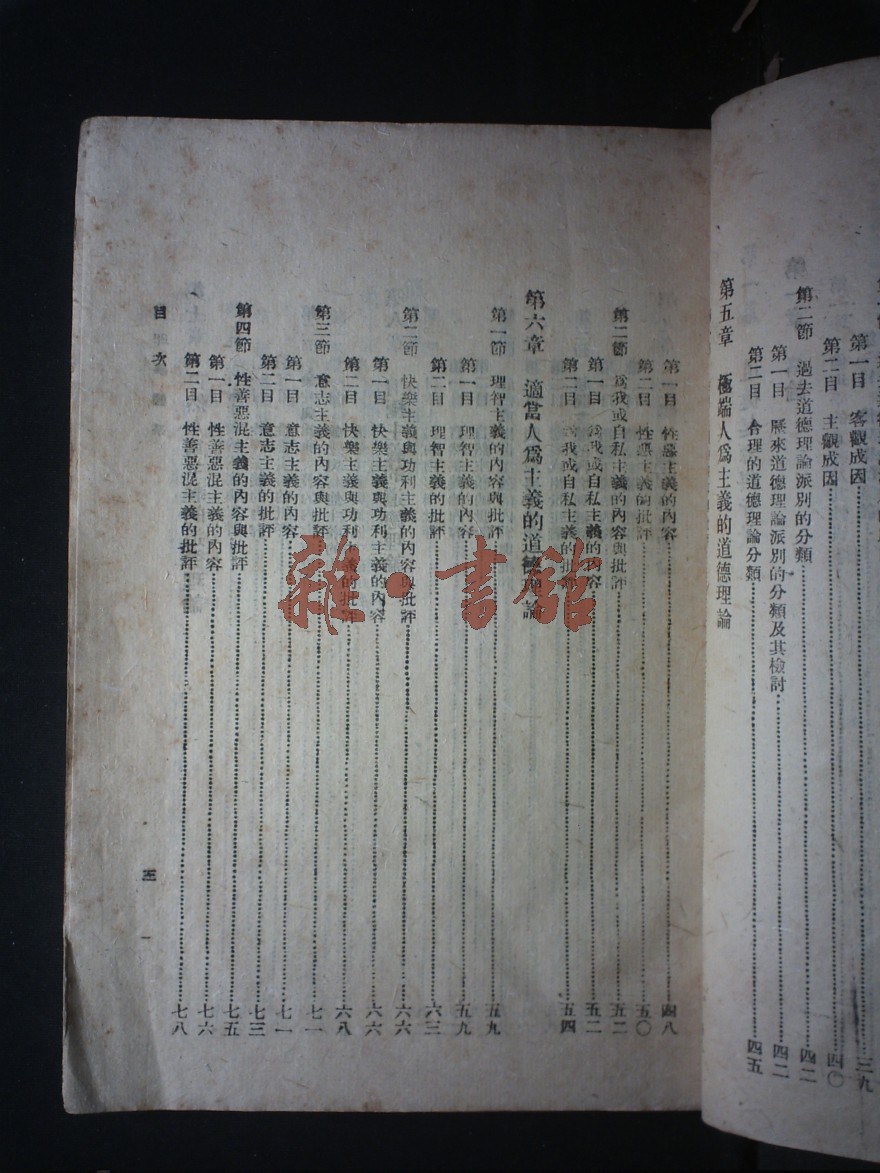 第一目 客觀成因 三九
第二目 主觀成因 四〇
第二節 過去道德理論派別的分類 四二
第一目 歷來道德理論派別的分類及其檢討 四二
第二目 合理的道德理論分類 四五
第五章 極端人爲主義的道德理論
第一目 性惡主義的內容 四八
第二目 性惡主義的批評 五〇
第二節 爲我或自私主義的內容與批評 五二
第一目 爲我或自私主義的內容 五二
第二目 爲我或自私主義的批評 五四
第六章 適當人爲主義的道德理論
第一節 理智主義的內容與批評 五九
第一目 理智主義的內容 五九
第二目 理智主義的批評 六三
第二節 快樂主義與功利主義的內容與批評 六六
第一目 快樂主義與功利主義的內容 六六
第二目 快樂主義與功利主義的批評 六八
第三節 意志主義的內容與批評 七一
第一目 意志主義的內容 七一
第二目 意志主義的批評 七三
第四節 性善惡混主義的內容與批評 七五
第一目 性善惡混主義的內容 七六
第二目 性善惡混主義的批評 七八
目次 三
雜·書館